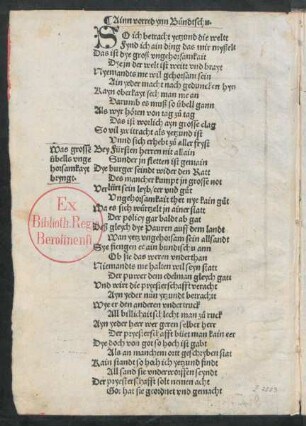 Ainn vorred ynn Bündtschu.
SO ich betracht yetzund die welte
Fynd ich ain ding das mir mysfelt
Das ist dye groß vngehorsamkait
Dye in der welt ist weitt vnd brayt
Nyemandts me wil gehorsam sein
Ain yeder macht nach geduncken hyn
Kayn oberkayt sech man me an
Darumb es muß so übell gann
Als wyr hören von tag zu tag
Das ist worlich ayn grosse clag
So vil zwitracht als yetzund ist
Vnnd sich erhebt zu aller fryst
Was grosse
übells vnge
horsamkayt
bryngt.
Bey Fürsten herren nit allain
Sunder jn stetten ist gemain
Dye burger seindt wider den Ratt
Des mancher kumpt jn grosse not
Verlürt sein leyb/eer vnd gůt
Vngehorsamkait thet nye kain gůt
Wa es sich wurtzelt jn ainer statt
Der policy gar baldt ab gat
Deß gleych dye Pauren auff dem landt
Wan yetz vngehorsam sein allsandt
Sye fiengen ee ain bundtschuch ann
Ob sie das weren vnderthan
Niemandts me halten will seyn statt
Der purwer dem edelman gleych gatt
Vnd wirt die pryesterschafft veracht
Ayn yeder nun yetzundt betracht
Wye er den anderen vndertruck
All billichait schlecht man zu ruck
Ayn yeder herr wer geren selber herr
Der pryesterschafft büt man kain eer
Dye doch von got so hoch ist gabt
Als an manchem ort geschryben stat
Kain standt so hoch ich yetzund findt
All sand sie vnderworffen seyndt
Der pryesterschafft solt nemen acht
Got hat sie geordnet vnd gemacht
Ex
Biblioth. Reg.
Berolinensi